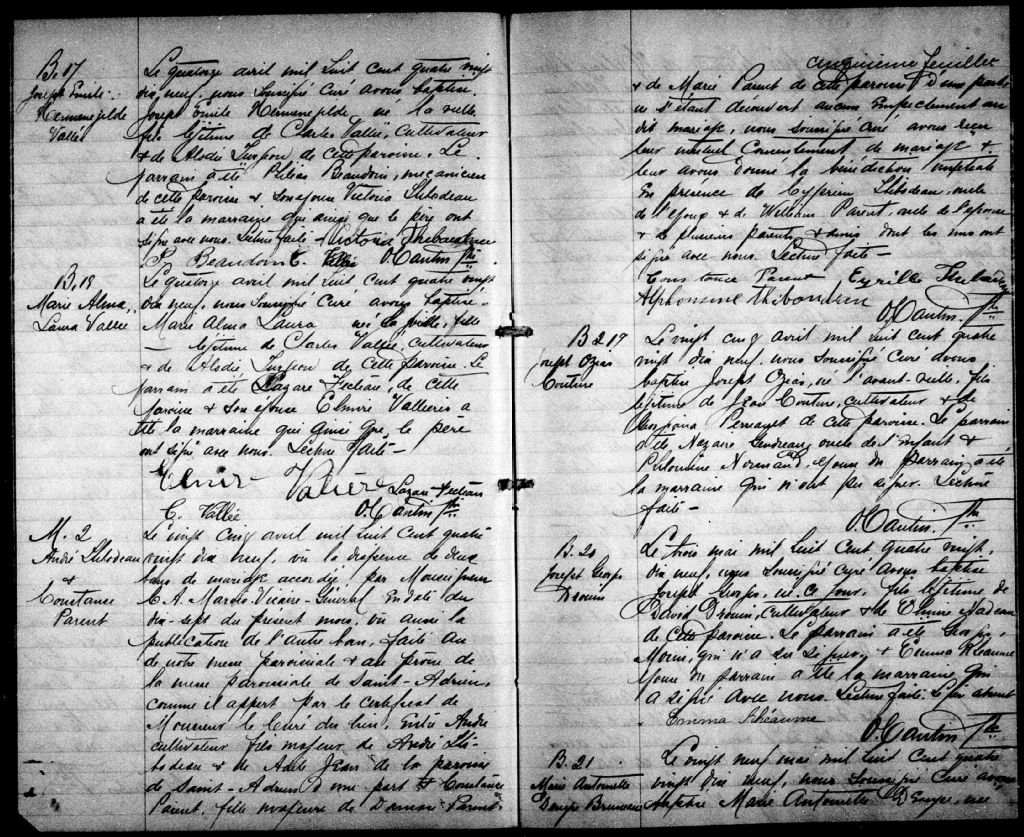 B. 17
Joseph Emile
Hermenegilde
Vallée
Le quatorze avril mil huit cent quatre vingt
dix neuf, nous soussigné Curé avons baptisé
Joseph Emile Hermenegilde né la veille
fils légitime de Charles Vallée, cultivateur
& de Alodie Turgeon de cette paroisse. Le
parrain a été Beaudoin, mecanicien
de cette paroisse & son epouse Victoria Thibodeau
a été la marraine qui ainsi que le père ont
signé avec nous. Lecture faite - Victoria Thibaudeau
P. Beaudoin C. Vallée O. Cantin Ptre
B. 18
Marie Alma
Laura Vallée
Le quatorze avril mil huit cent quatre vingt
dix neuf, nous soussigné Curé avons baptisé
Marie Alma Laura née la veille, fille
légitime de Charles Vallée, cultivateur
& de Alodie Turgeon de cette paroisse. Le
parrain a été Lazare Fecteau, de cette
paroisse & son epouse Elmire Vallières a
été la marraine qui ainsi que le père
ont signé avec nous. Lecture faite -
Elmire Lazare Fecteau
C. Vallée O. Cantin Ptre
M. 2
André Thibodeau
&
Constance
Parent
Le vingt cinq avril mil huit cent quatre
vingt dix neuf, vu la dispense de deux
bans de mariage accordée par Monseigneur
C. A. Marois Vicaire-Général En date du
dix-sept du présent mois, vu aussi la
publication de l'autre ban, faite au
de notre messe paroissiale & au prône de
la messe paroissiale de Saint-Adrien,
comme il appert par le certificat de
Monsieur le Curé du lieu, Entre André
cultivateur fils majeur de André Thi-
bodeau & de Adèle Jean de la paroisse
de Saint-Adrien d'une part & Constance
Parent, fille majeure de Damase Parent
cinquieme feuillet
& de Marie Parent de cette paroisse d'une part
ne s'étant découvert aucun Empêchement au
dit mariage, nous soussigné curé avons reçu
leur mutuel Consentement de mariage &
leur avons donné la bénédiction nuptiale
En présence de Cyprien Thibodeau, oncle
de l'epoux & de William Parent, oncle de l'epouse
& de plusieurs parents & amis dont les uns ont
signé avec nous. Lecture faite -
Constance Parent Cyrille Thibaudeau
Alphonsine Thibaudeau
O. Cantin Ptre
B 19
Joseph Ozias
Couture
Le vingt cinq avril mil huit cent quatre
vingt dix neuf, nous soussigné Curé avons
baptisé Joseph Ozias, né l'avant-veille, fils
légitime de Jean Couture, cultivateur & de
Georgiana de cette paroisse. Le parrain
a été Nazaire oncle de l'enfant &
Philomène Normand, épouse du parrain, a été
la marraine qui n'ont pu signer. Lecture
faite -
O. Cantin Ptre
B. 20
Joseph Georges
Drouin
Le trois mai mil huit cent quatre vingt
dix neuf, nous soussigné curé avons baptisé
Joseph Georges, né ce jour, fils légitime de
David Drouin, cultivateur & de Elmire Nadeau
de cette paroisse. Le parrain a été Georges
Morin, qui n'a su signer, & Emma Rhéaume
épouse du parrain a été la marraine qui
a signé avec nous. Lecture faite. Le père absent
Emma Rhéaume
O. Cantin Ptre
B. 21
Marie Antoinette
Bruneau
Le vingt neuf mai mil huit cent quatre
vingt dix neuf, nous soussigné Curé avons
baptisé Marie Antoinette née